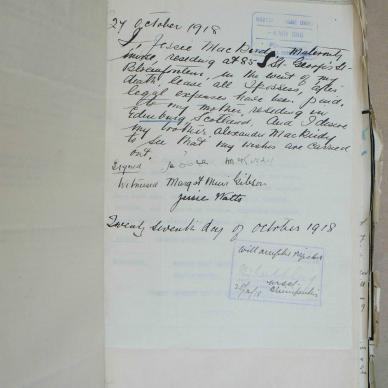 27 October 1918
I Jessie MacKirdy Maternity
nurse, residing at 85 St. George's St.
Bloemfontein, in the event of my
death, leave all I possess, after
legal expenses have been paid,
to my mother, residing in
Edinburg Scotland. And I desire
my brother Alexander MacKirdy
to see that my wishes are carried
out.
Signed Jessie MacKirdy
Witnessed Margt Muir Gibson
Jessie Watts
Twenty seventh day of October 1918
Will accepted Register